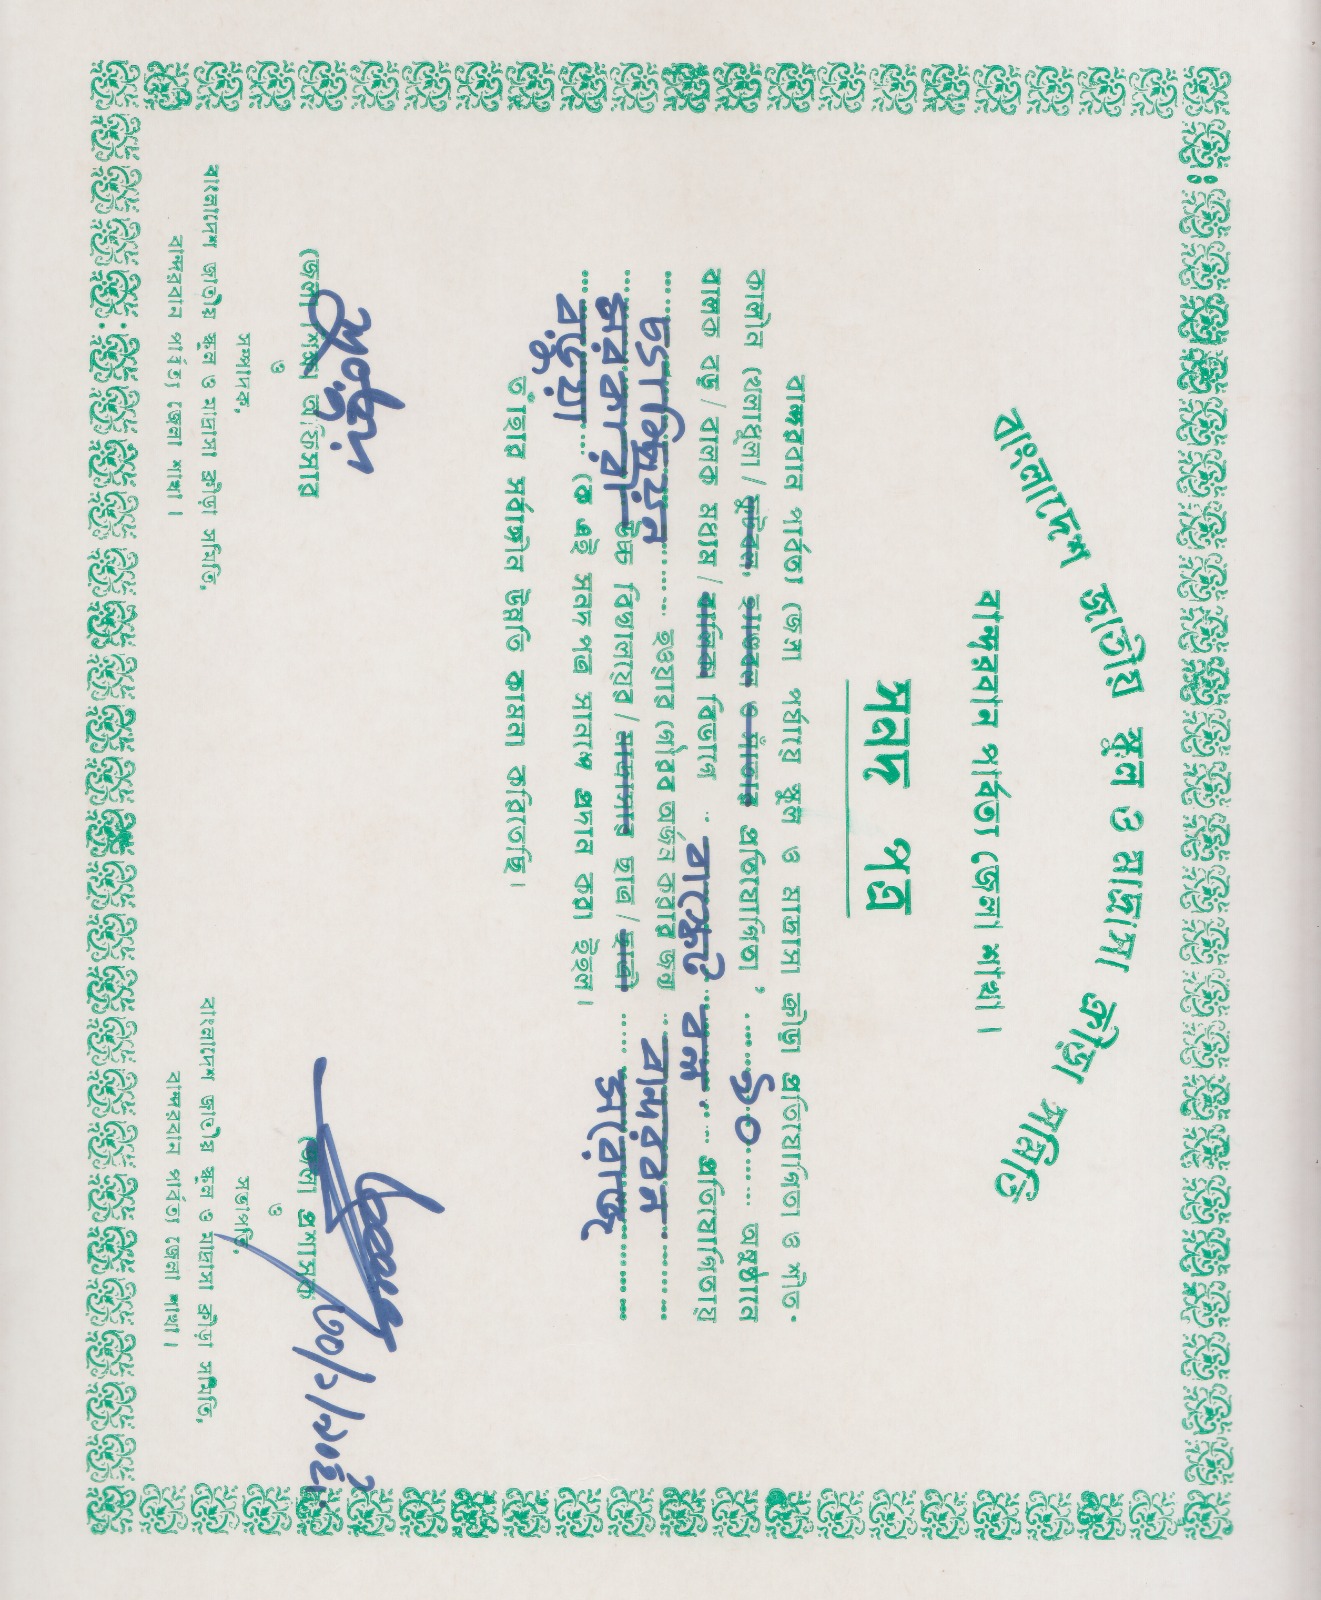 বাংলাদেশ জাতীয় স্কুল ও মাদ্রাসা ক্রীড়া সমিতি
বান্দরবান পার্বত্য জেলা শাখা।
সনদ পত্র
বান্দরবান পার্বত্য জেলা পর্যায়ে স্কুল ও মাদ্রাসা ক্রীড়া প্রতিযোগিতা ও শীত-
কালীন খেলাধূলা / ফুটবল, হ্যাণ্ডবল ও সাঁতার প্রতিযোগিতা ' ৯০ অনুষ্ঠানে
বালক বড় / বালক মধ্যম / বালিকা বিভাগে বাস্কেট বল প্রতিযোগিতায়
চ্যাম্পিয়ন হওয়ার গৌরব অর্জন করার জন্য বান্দরবন
সরকারী উচ্চ বিদ্যালয়ের / মাদ্রাসার ছাত্র / ছাত্রী সরোজ
বড়ুয়া কে এই সনদ পত্র সানন্দে প্রদান করা ইহল।
তাঁহার সর্বাঙ্গীন উন্নতি কামনা করিতেছি।
৩০/১/৯০ইং
জেলা শিক্ষা অফিসার
জেলা প্রশাসক
ও
ও
সম্পাদক,
সভাপতি,
বাংলাদেশ জাতীয় স্কুল ও মাদ্রাসা ক্রীড়া সমিতি,
বাংলাদেশ জাতীয় স্কুল ও মাদ্রাসা ক্রীড়া সমিতি,
বান্দরবান পার্বত্য জেলা শাখা।
বান্দরবান পার্বত্য জেলা শাখা।